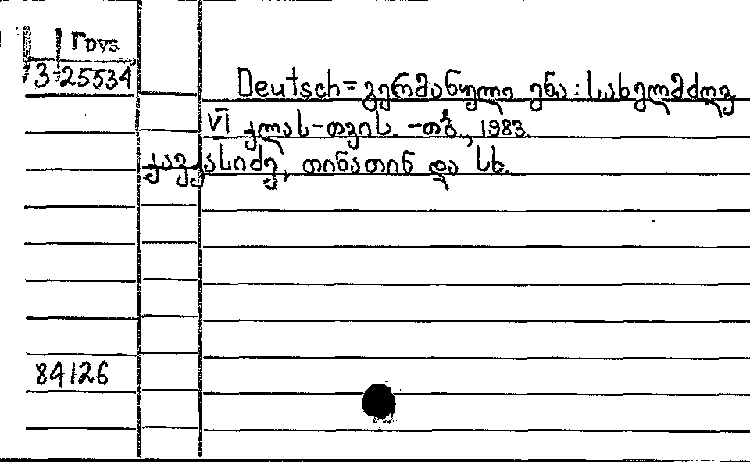 Груз
3-25534
Deutsch = გერმანული ენა : სახელმძღვ
VI კლას-თვის. -თბ., 1983.
კავკასიძე, თინათინ და სხ.
84126